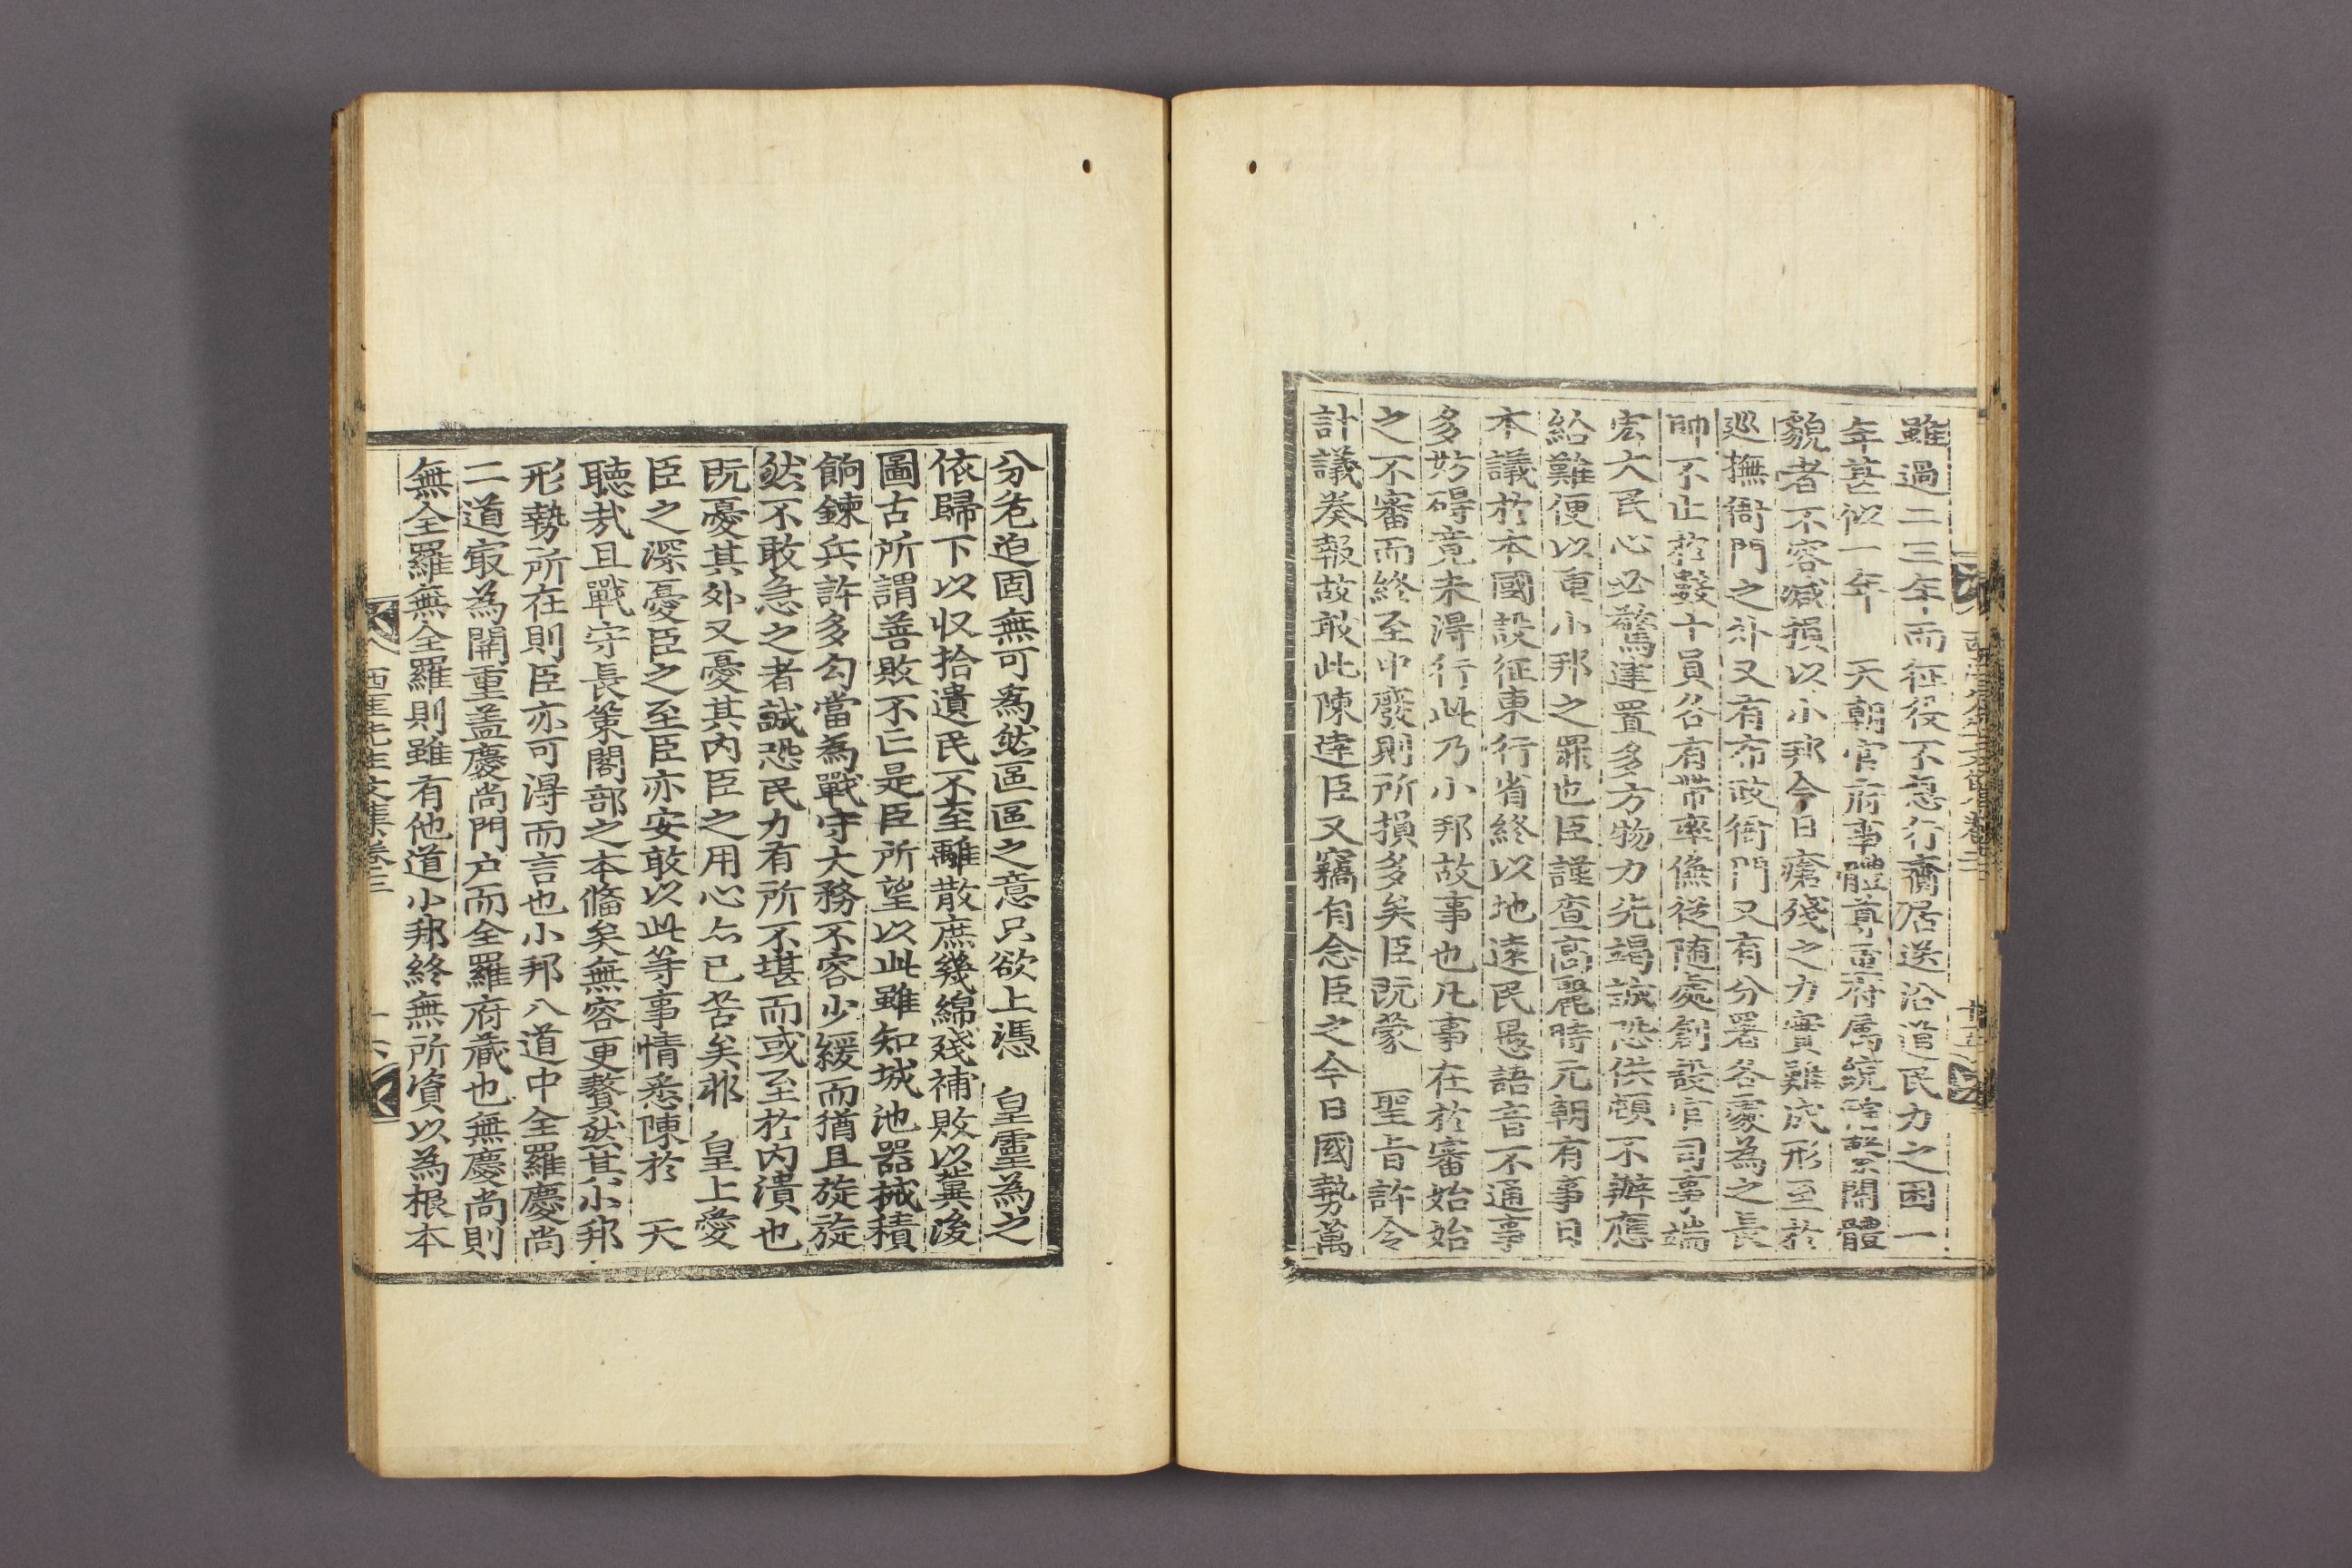 雖過二三年而征役不息行賫居送沿道民力之困一
年甚似一年　天朝官府事體尊重府屬統轄繫關體
貌者不容减損以小邦今日瘡殘之力實難成形至於
巡撫衙門之外又有布政衙門又有分署各處為之長
帥不止於數十員各有帶率傔從随處創設官司事端
宏大民心必驚建置多方物力先竭誠恐供頓不辦應
給難便以重小邦之罪也臣謹查高麗時元朝有事日
本議於本國設征東行省終以地遠民愚語音不通事
多妨碍竟未淂行此乃小邦故事也凡事在於審始始
之不審而終至中廢則所損多矣臣既蒙　聖旨許令
計議奏報故敢此陳達臣又竊有念臣之今日國勢萬
分危迫固無可爲然區區之意只欲上憑　皇靈為之
依歸下以収拾遺民不至離散庶幾綿殘補敗以冀後
圖古所謂善敗不亡是臣所望以此雖知城池器械積
餉鍊兵許多勾當為戰守大務不容少緩而猶且旋旋
然不敢急之者誠恐民力有所不堪而或至於内潰也
既憂其外又憂其内臣之用心亦已苦矣非　皇上愛
臣之深憂臣之至臣亦安敢以此等事情悉陳於　天
聽㢤且戰守長策閣部之本俻矣無容更贅然其小邦
形勢所在則臣亦可淂而言也小邦八道中全羅慶尚
二道㝡為關重盖慶尚門户而全羅府藏也無慶尚則
無全羅無全羅則雖有他道小邦終無所資以為根本
西厓先生文集卷三
十六